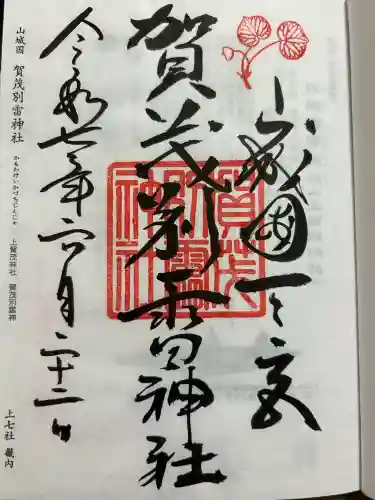 山城國一之宮
賀茂別雷神社
令和七年六月二十二日
賀茂別雷神社
山城国 賀茂別雷神社 かもわけいかづちじんじゃ 上賀茂神社 賀茂別雷神 上七社 畿内